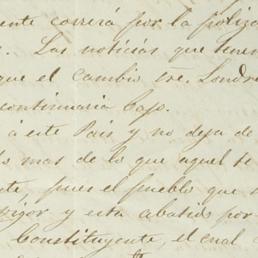 ente correrá por la poliza
Las noticias que tene
que el cambio sre. Londre
continuaria bajo.
á este Pais y no deja de
mas de lo que aquel se
te, pues el pueblo que s
rigor y esta abatido por
Constituyente, el cual